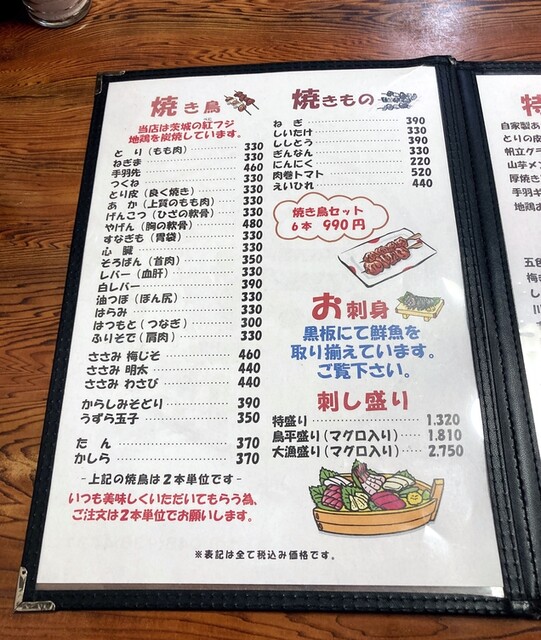 焼き鳥
当店は茨城の紅フジ
地鶏を炭焼しています。
とり（もも肉） 330
ねぎま 330
手羽先 460
つくね 330
とり皮（良く焼き） 330
あか（上質のもも肉） 330
げんこつ（ひざの軟骨） 330
やげん（胸の軟骨） 480
すなぎも（胃袋） 330
心臓 330
そろばん（首肉） 350
レバー（血肝） 330
白レバー 390
油つぼ（ぼん尻） 330
はらみ 330
はつもと（つなぎ） 300
ふりそで（肩肉） 330
ささみ 梅じそ 460
ささみ 明太 440
ささみ わさび 440
からしみそどり 390
うずら玉子 350
たん 370
かしら 370
-上記の焼鳥は2本単位です-
いつも美味しくいただいてもらう為、
ご注文は2本単位でお願いします。
焼きもの
ねぎ 390
しいたけ 330
ししとう 390
ぎんなん 330
にんにく 220
肉巻トマト 520
えいひれ 440
焼き鳥セット
6本 990円
お刺身
黒板にて鮮魚を
取り揃えています。
ご覧下さい。
刺し盛り
特盛り 1.320
鳥平盛り（マグロ入り） 1.810
大漁盛り（マグロ入り） 2.750
※表記は全て税込み価格です。
特
自家製あ
とりの皮
帆立グラ
山芋メン
厚焼き
手羽ギ
地鶏お
五色
梅き
し
川